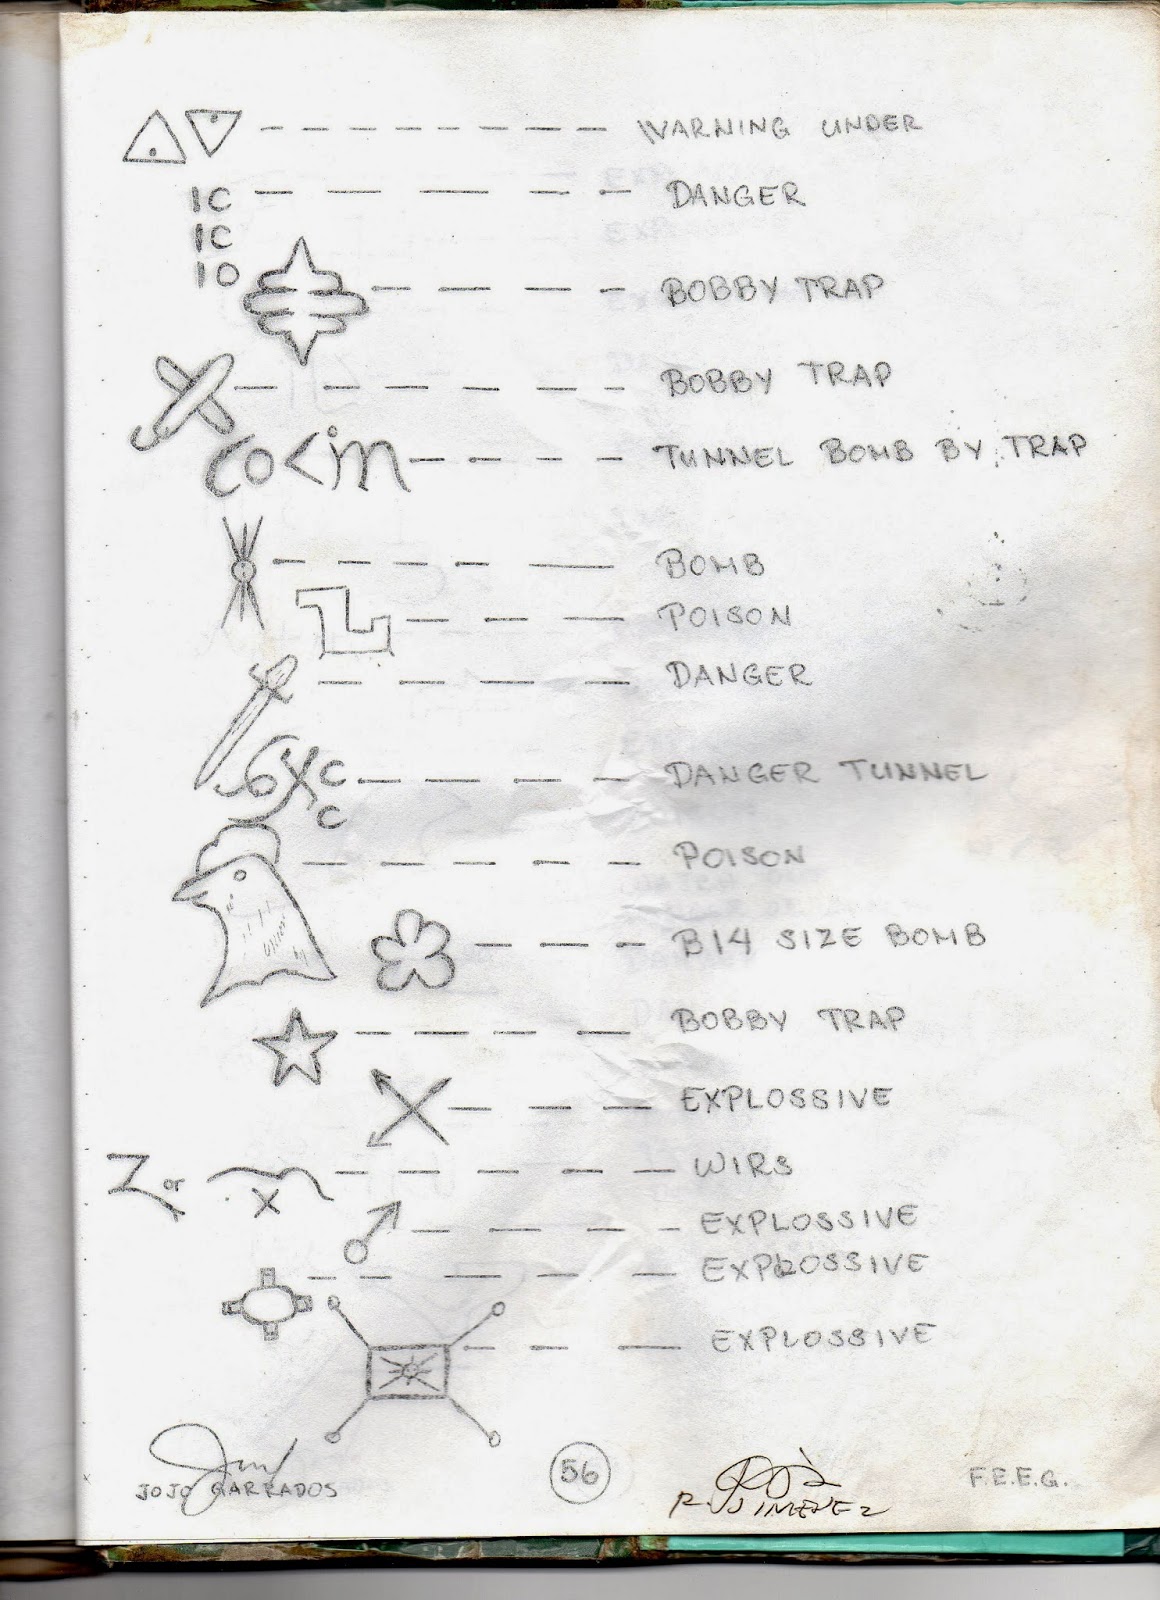 WARNING UNDER
1C DANGER
1C
10 BOBBY TRAP
BOBBY TRAP
TUNNEL BOMB BY TRAP
BOMB
POISON
DANGER
6XC DANGER TUNNEL
C
POISON
B14 SIZE BOMB
BOBBY TRAP
EXPLOSSIVE
Z or X WIRS
EXPLOSSIVE
EXPLOSSIVE
EXPLOSSIVE
JOJO 56 R. JIMENEZ F.E.E.G.